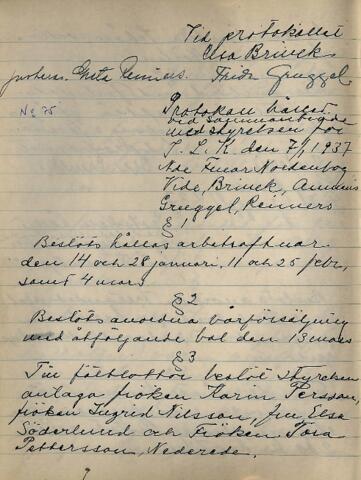 Vid protokollet
Elsa Brinck
justera. Greta Reiners. Frida Gruggel
No 75
Protokoll hållet
vid sammanträde
med styrelsen för
S. L. K. den 7/1 1937
Nde Fruar Nordenbog
Vide, Brinck,
Gruggel, Reiners
§ 1
Beslöts hållas arbetsaftnar
den 14 och 28 januari, 11 och 25 febr,
samt 4 mars
§ 2
Beslöts anordna vårförsäljning
med åtföljande bal den 13 mars
§ 3
Till förlottor beslöt styrelsen
antaga fröken Karin Persson,
fröken Ingrid Nilsson, fru Elsa
Söderlund och Fröken Tora
Pettersson, Nederede.